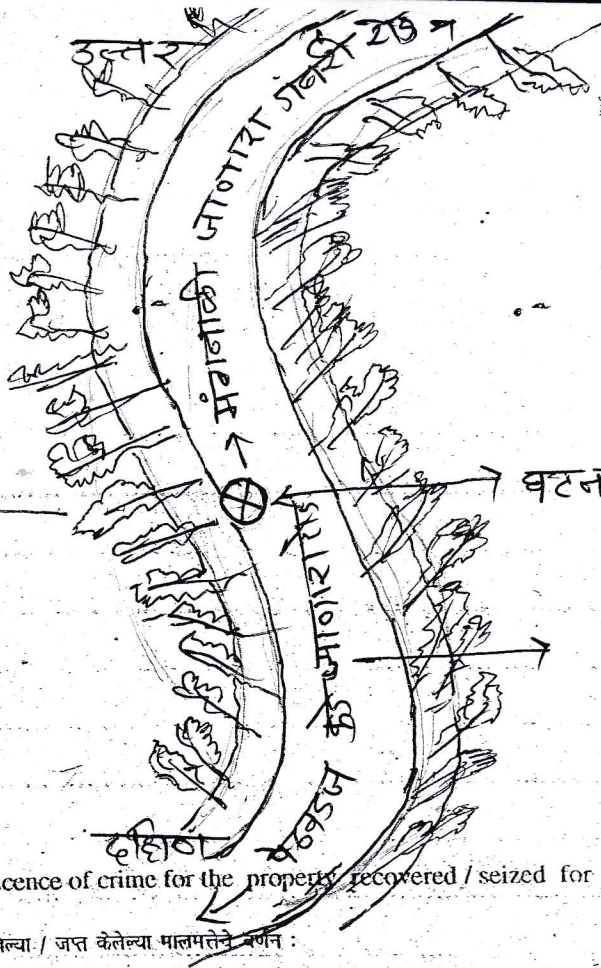 उत्तर
जाणारा डांबरी रस्ता
घटन
कडे जाणारा रोड
दक्षिण
cence of crime for the property recovered / seized for
ल्या / जप्त केलेल्या मालमत्तेचे वर्णन :